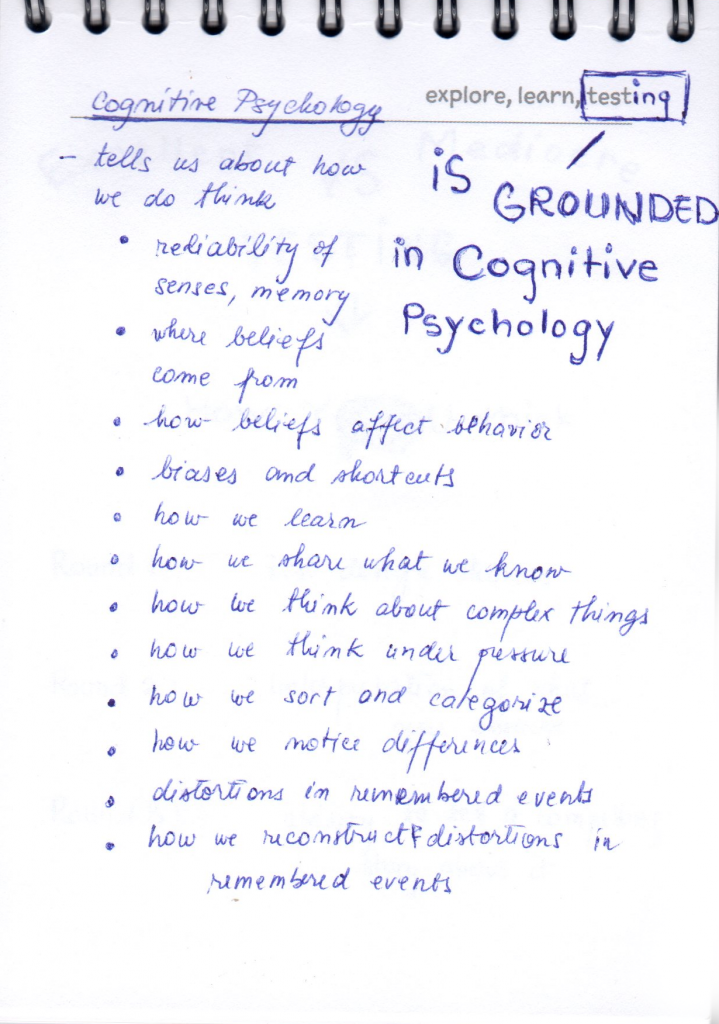 explore, learn, testing
Cognitive Psychology
– tells us about how
we do think
• reliability of
senses, memory
• where beliefs
come from
• how beliefs affect behavior
• biases and shortcuts
• how we learn
• how we share what we know
• how we think about complex things
• how we think under pressure
• how we sort and categorize
• how we notice differences
• distortions in remembered events
• how we reconstruct & distortions in
remembered events
iS
GROUNDED
in Cognitive
Psychology